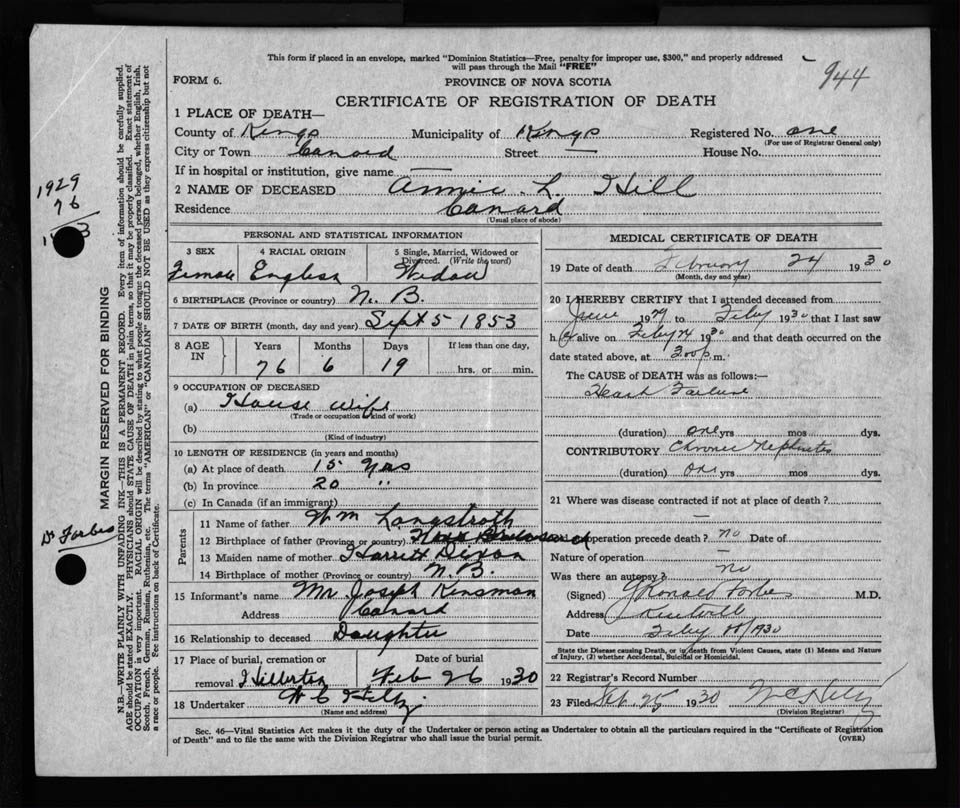 This form if placed in an envelope, marked "Dominion Statistics—Free, penalty for improper use, $300," and properly addressed
will pass through the Mail "FREE"
944
FORM 6.
PROVINCE OF NOVA SCOTIA
CERTIFICATE OF REGISTRATION OF DEATH
1 PLACE OF DEATH—
County of Kings Municipality of Kings Registered No. one
(For use of Registrar General only)
City or Town Canard Street — House No.
If in hospital or institution, give name —
2 NAME OF DECEASED Annie L. Hill
Residence Canard
(Usual place of abode)
PERSONAL AND STATISTICAL INFORMATION
3 SEX 4 RACIAL ORIGIN 5 Single, Married, Widowed or Divorced. (Write the word)
Female English Widow
6 BIRTHPLACE (Province or country) N. B.
7 DATE OF BIRTH (month, day and year) Sept 5 1853
8 AGE IN Years Months Days If less than one day,
76 6 19 hrs. or min.
9 OCCUPATION OF DECEASED
(a) House Wife
(Trade or occupation / kind of work)
(b)
(Kind of industry)
10 LENGTH OF RESIDENCE (in years and months)
(a) At place of death 15 yrs
(b) In province 20 "
(c) In Canada (if an immigrant)
Parents
11 Name of father Wm Langstroth
12 Birthplace of father (Province or country)
13 Maiden name of mother Harrett Dixon
14 Birthplace of mother (Province or country) N. B.
15 Informant's name Mr Joseph Kinsman
Address Canard
16 Relationship to deceased Daughter
17 Place of burial, cremation or removal Date of burial
Feb 26 1930
18 Undertaker
(Name and address)
MEDICAL CERTIFICATE OF DEATH
19 Date of death February 24 1930
(Month, day and year)
20 I HEREBY CERTIFY that I attended deceased from
June 1929 to Feby 1930 that I last saw
h er alive on Feby 24 1930 and that death occurred on the
date stated above, at 3.00 p. m.
The CAUSE of DEATH was as follows:—
Heart Failure
(duration) one yrs mos dys.
CONTRIBUTORY Chronic Nephritis
(duration) one yrs mos dys.
21 Where was disease contracted if not at place of death?
—
operation precede death? no Date of
Nature of operation —
Was there an autopsy? no
(Signed) J Ronald Forbes M.D.
Address Kentville
Date Feby 1930
State the Disease causing Death, or in death from Violent Causes, state (1) Means and Nature
of Injury, (2) whether Accidental, Suicidal or Homicidal.
22 Registrar's Record Number
23 Filed 25 1930
(Division Registrar)
Sec. 46—Vital Statistics Act makes it the duty of the Undertaker or person acting as Undertaker to obtain all the particulars required in the "Certificate of Registration
of Death" and to file the same with the Division Registrar who shall issue the burial permit.
(OVER)
1929
76
Dr Forbes
MARGIN RESERVED FOR BINDING
N.B.—WRITE PLAINLY WITH UNFADING INK—THIS IS A PERMANENT RECORD. Every item of information should be carefully supplied.
AGE should be stated EXACTLY. PHYSICIANS should STATE CAUSE OF DEATH in plain terms, so that it may be properly classified. Exact statement of
OCCUPATION is very important. RACIAL ORIGIN will be described by stating to what people or tongue the deceased person belonged, whether English, Irish,
Scotch, French, German, Russian, Ruthenian, etc. The terms "AMERICAN" or "CANADIAN" SHOULD NOT BE USED as they express citizenship but not
a race or people. See instructions on back of Certificate.